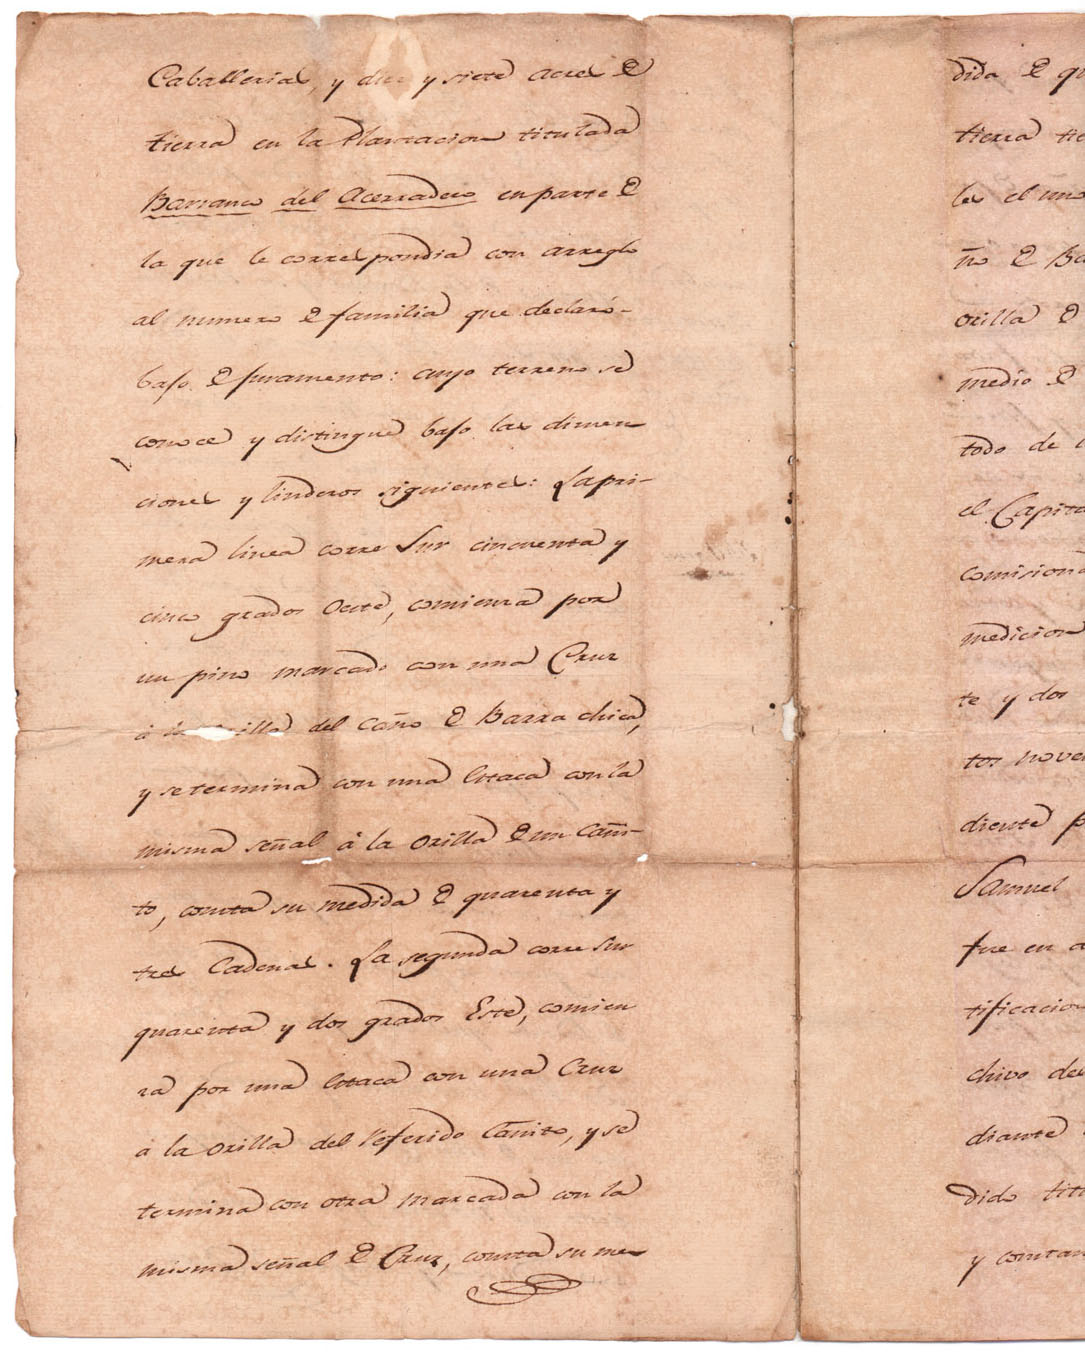 Caballerias, y diez y siete acres de
tierra en la Plantacion titulada
Barranco del Acerradero en parte de
la que le correspondia con arreglo
al numero de familia que declaró
bajo de juramento: cuyo terreno se
conoce y distingue bajo las dimen
ciones y linderos siguientes: La pri-
mera linea corre Sur cincuenta y
cinco grados Oeste, comienza por
un pino marcado con una Cruz
á la orilla del Caño de Barra chica,
y se termina con una Estaca con la
misma señal á la orilla de un Cañi-
to, consta su medida de quarenta y
tres Cadenas. La segunda corre Sur
quarenta y dos grados Este, comien
za por una Estaca con una Cruz
á la orilla del referido Cañito, y se
termina con otra marcada con la
misma señal de Cruz, consta su me
dida de
tierra
les el uno
ño de
orilla de
medio de
todo de
el
medicion
te y dos
tos
diente
Samuel
fue en
chivo del
diante
dido
y